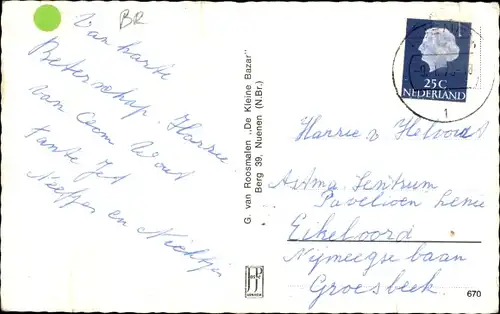 BR
Van harte
Beterschap. Harrie.
van Oom Wout
tante Jet
Neefjes en Nichtjes
G. van Roosmalen „De Kleine Bazar"
Berg 39, Nuenen (N.Br.)
25C
NEDERLAND
1
Harrie v Helvoirt
Astma Centrum
Pavelioen Lenie
Eikeloord
Nijmeegse baan
Groesbeek.
670